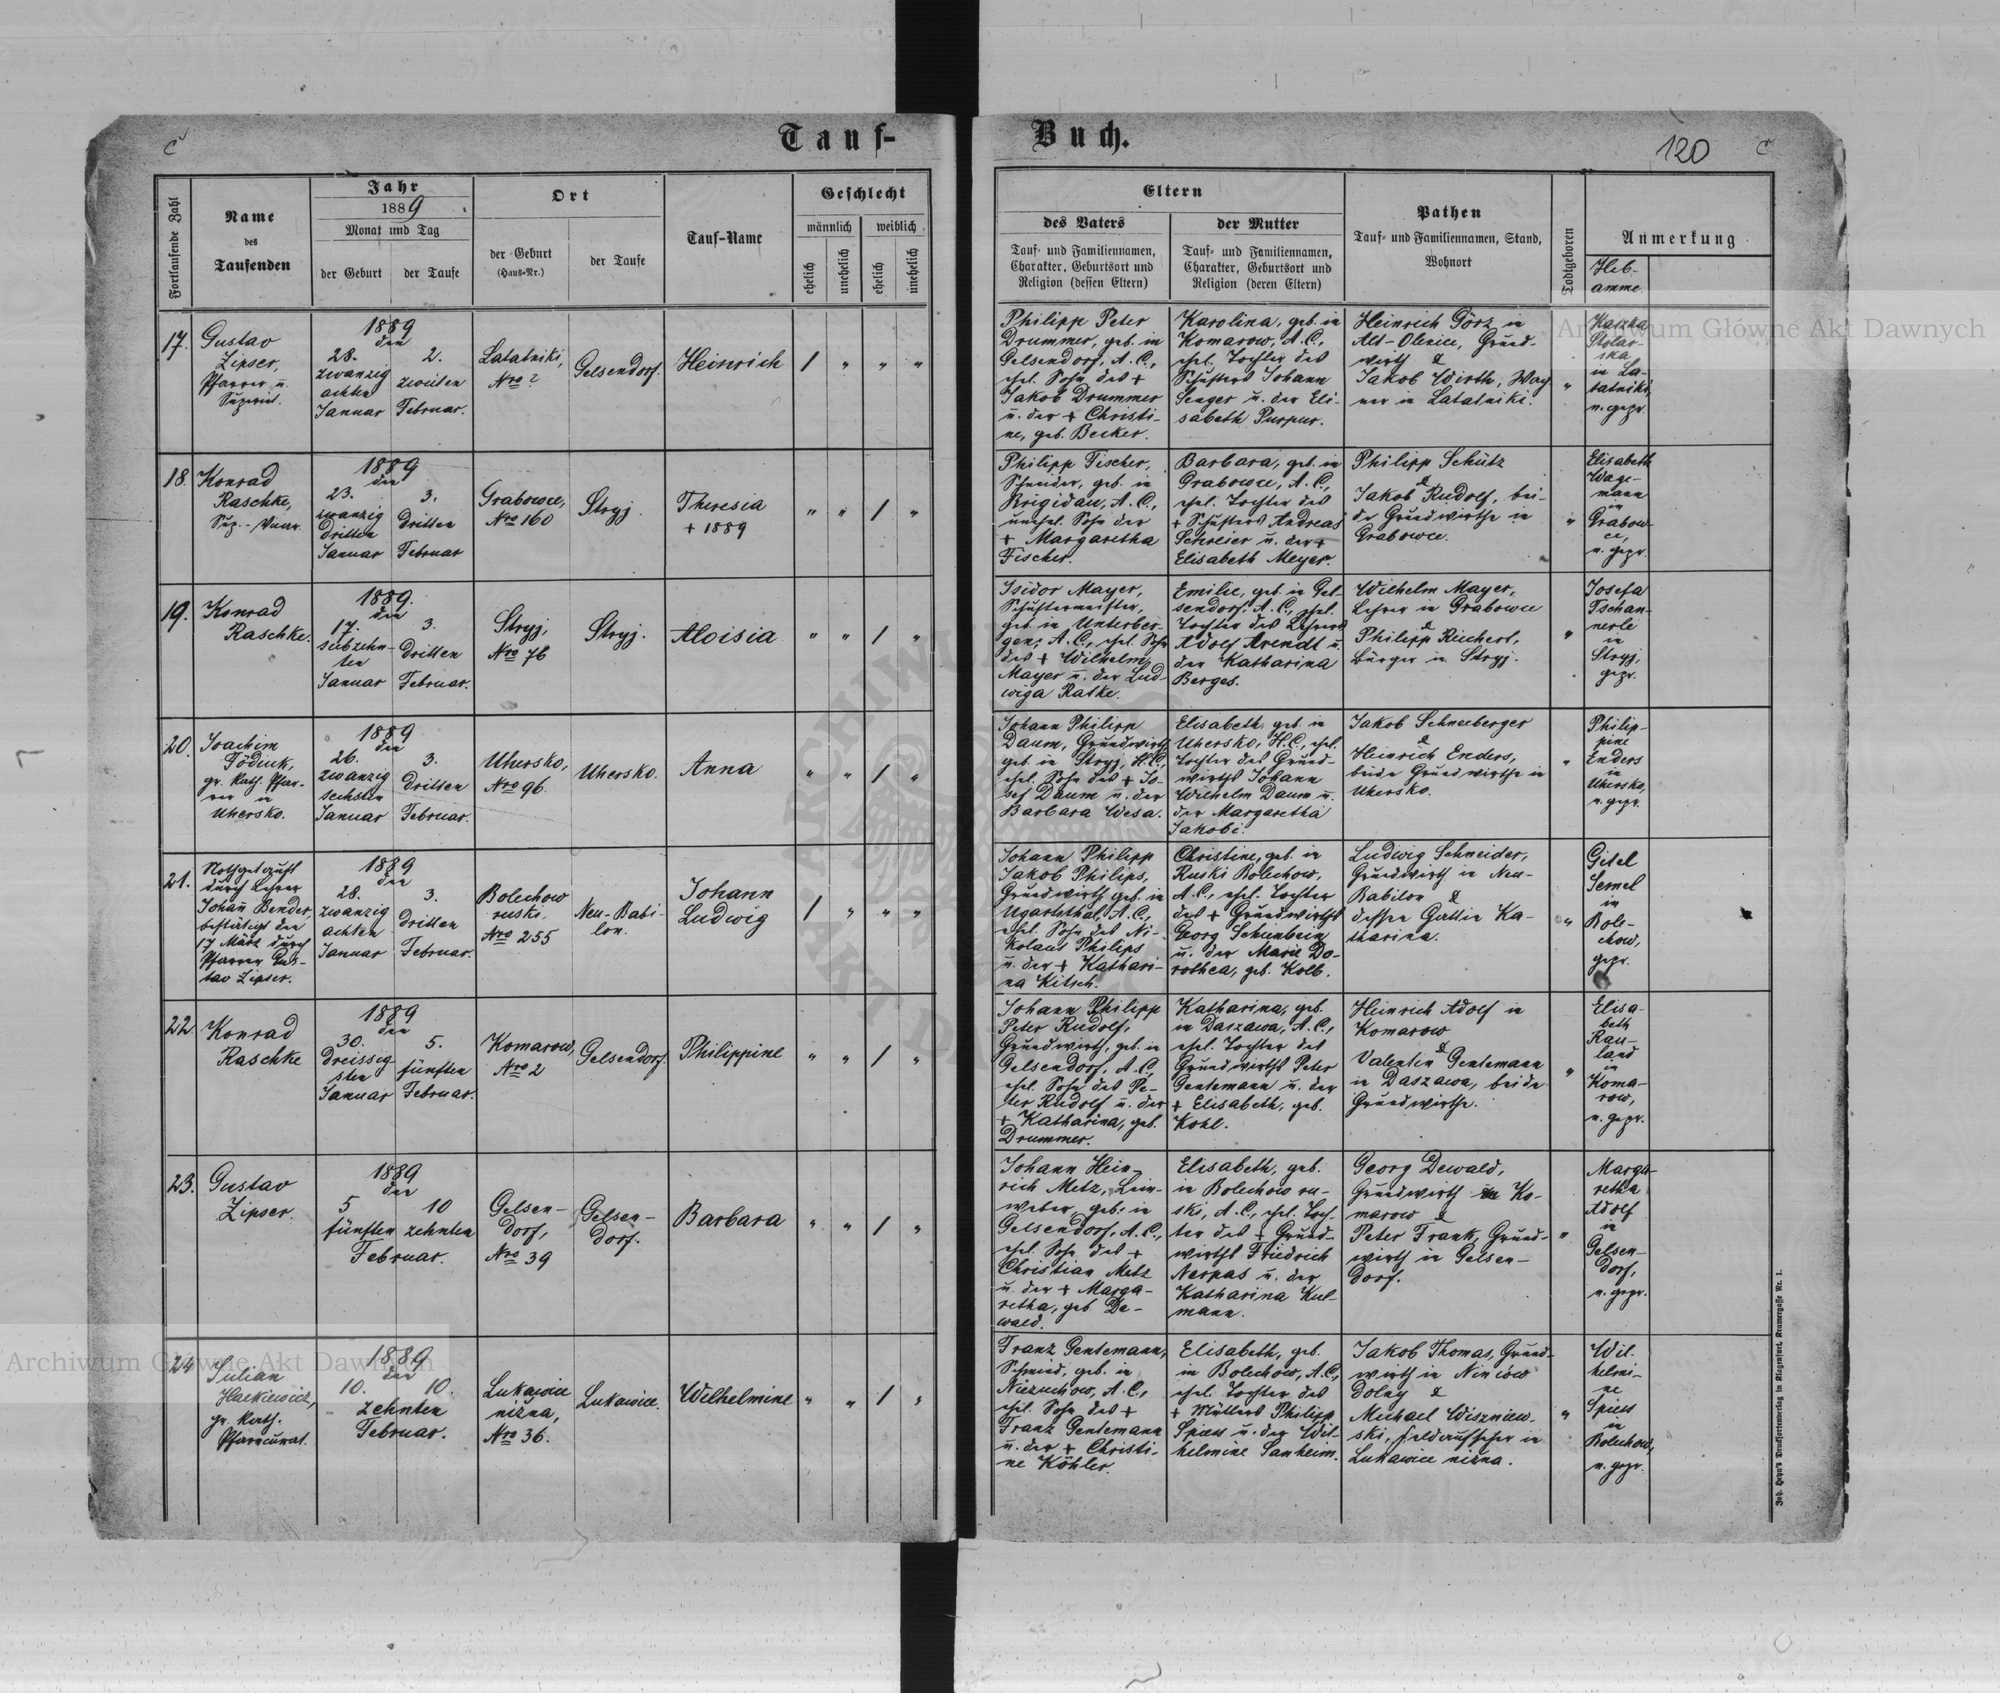 Tauf-
Buch.
120
Fortlaufende Zahl
Name
des
Taufenden
Jahr
1889
Monat und Tag
der Geburt
der Taufe
Ort
der Geburt
(Haus-Nr.)
der Taufe
Tauf-Name
Geschlecht
männlich
weiblich
ehelich
unehelich
ehelich
unehelich
Eltern
des Vaters
Tauf- und Familiennamen,
Charakter, Geburtsort und
Religion (dessen Eltern)
der Mutter
Tauf- und Familiennamen,
Charakter, Geburtsort und
Religion (deren Eltern)
Pathen
Tauf- und Familiennamen, Stand,
Wohnort
Todtgeboren
Anmerkung
Heb-
amme.
17.
Gustav
Zipser,
Pfarrer u.
1889
den
28.
zwanzig
achten
Januar
2.
zweiten
Februar.
Latatniki,
Nro 2
Gelsendorf.
Heinrich
Philipp Peter
Drummer, geb. in
Gelsendorf, A.C.,
ehel. Sohn des +
Jakob Drummer
u. der + Christi-
ne, geb. Becker.
Karolina, geb. in
Komarow, A.C.,
ehel. Tochter des
Schusters Johann
Senger u. der Eli-
sabeth Purpur.
Heinrich Görz in
Alt-Olexice, Grund-
wirth &
Jakob Wirth, Wag
ner in Latatniki.
Kaszka
Stolar-
ska
in La-
tatniki,
u. gepr.
18.
Konrad
Raschke,
Sup.-Vicar.
1889
den
23.
zwanzig
dritten
Januar
3.
dritten
Februar
Grabowce,
Nro 160
Stryj.
Theresia
+ 1889
Philipp Fischer,
Schneider, geb. in
Brigidau, A.C.,
unehel. Sohn der
+ Margaretha
Fischer.
Barbara, geb. in
Grabowce, A.C.,
ehel. Tochter des
+ Schusters Andreas
Schreier u. der +
Elisabeth Meyer.
Philipp Schütz
&
Jakob Rudolf, bei-
de Grundwirthe in
Grabowce.
Elisabeth
Wage-
mann
in
Grabow-
ce,
u. gepr.
19.
Konrad
Raschke.
1889.
den
17.
siebzehn-
ten
Januar
3.
dritten
Februar.
Stryj,
Nro 76
Stryj.
Aloisia
Isidor Mayer,
Schustermeister,
geb. in Unterber-
gen, A.C., ehel. Sohn
des + Wilhelm
Mayer u. der Lud-
wiga Ratke.
Emilie, geb. in Gel-
sendorf, A.C., ehel.
Tochter des Lehrers
Adolf Arendt u.
der Katharina
Berges.
Wilhelm Mayer,
Lehrer in Grabowce
&
Philipp Reichert,
Bürger in Stryj.
Josefa
Tschan-
nerle
in
Stryj,
gepr.
20.
Joachim
Födiuk,
gr. kath. Pfar-
rer in
Uhersko.
1889
den
26.
zwanzig
sechsten
Januar
3.
dritten
Februar.
Uhersko,
Nro 96.
Uhersko.
Anna
Johann Philipp
Daum, Grundwirth,
geb. in Stryj, H.C.,
ehel. Sohn des + Jo-
sef Daum u. der
Barbara Wesa.
Elisabeth, geb. in
Uhersko, H.C., ehel.
Tochter des Grund-
wirths Johann
Wilhelm Daum u.
der Margaretha
Jakobi.
Jakob Schneeberger
&
Heinrich Enders,
beide Grundwirthe in
Uhersko.
Philip-
pine
Enders
in
Uhersko,
u. gepr.
21.
Nothgetauft
durch Lehrer
Johann Bender,
bestätigt den
17 März durch
Pfarrer Gus-
tav Zipser.
1889
den
28.
zwanzig
achten
Januar
3.
dritten
Februar.
Bolechow
ruski.
Nro 255
Neu-Babi-
lon.
Johann
Ludwig
Johann Philipp
Jakob Philips,
Grundwirth, geb. in
Ugartsthal, A.C.,
ehel. Sohn des Ni-
kolaus Philips
u. der + Kathari-
na Kitsch.
Christine, geb. in
Ruski Bolechow,
A.C., ehel. Tochter
des + Grundwirths
Georg Scheinbein
u. der Marie Do-
rothea, geb. Kolb.
Ludwig Schneider,
Grundwirth in Neu-
Babilon &
dessen Gattin Ka-
tharina.
Gitel
Semel
in
Bole-
chow,
gepr.
22
Konrad
Raschke
1889
den
30.
dreissig-
sten
Januar
5.
fünften
Februar.
Komarow,
Nro 2
Gelsendorf.
Philippine
Johann Philipp
Peter Rudolf,
Grundwirth, geb. in
Gelsendorf, A.C.,
ehel. Sohn des Pe-
ter Rudolf u. der
+ Katharina, geb.
Drummer.
Katharina, geb.
in Daszawa, A.C.,
ehel. Tochter des
Grundwirths Peter
Gentemann u. der
+ Elisabeth, geb.
Kohl.
Heinrich Adolf in
Komarow
&
Valentin Gentemann
in Daszawa, beide
Grundwirthe.
Elisa-
beth
Rau-
land
in
Koma-
row,
u. gepr.
23.
Gustav
Zipser.
1889
den
5
fünften
10
zehnten
Februar.
Gelsen-
dorf,
Nro 39
Gelsen-
dorf.
Barbara
Johann Hein-
rich Metz, Lein-
weber, geb. in
Gelsendorf, A.C.,
ehel. Sohn des +
Christian Metz
u. der + Marga-
retha, geb. De-
wald.
Elisabeth, geb.
in Bolechow ru-
ski, A.C., ehel. Toch-
ter des + Grund-
wirths Friedrich
Nerpas u. der
Katharina Kul-
mann.
Georg Dewald,
Grundwirth in Ko-
marow &
Peter Frank, Grund-
wirth in Gelsen-
dorf.
Marga-
retha
Adolf
in
Gelsen-
dorf,
u. gepr.
24
Julian
Hackiewicz,
gr. kath.
Pfarrcurat.
1889
den
10.
10.
zehnten
Februar.
Lukawice
nižna,
Nro 36.
Lukawice.
Wilhelmine
Franz Gentemann,
Schmied, geb. in
Niezuchow, A.C.,
ehel. Sohn des +
Franz Gentemann
u. der + Christi-
ne Köhler.
Elisabeth, geb.
in Bolechow, A.C.,
ehel. Tochter des
+ Müllers Philipp
Spiess u. der Wil-
helmine Sanheim.
Jakob Thomas, Grund-
wirth in Niniów
dolny &
Michael Wiszniew-
ski, Feldaufseher in
Lukawice nižna.
Wil-
helmi-
ne
Spiess
in
Bolechow,
u. gepr.
Joh. Heyn's Drucksortenverlag in Klagenfurt, Kramergasse Nr. 1.
Archiwum Główne Akt Dawnych
Archiwum Główne Akt Dawnych